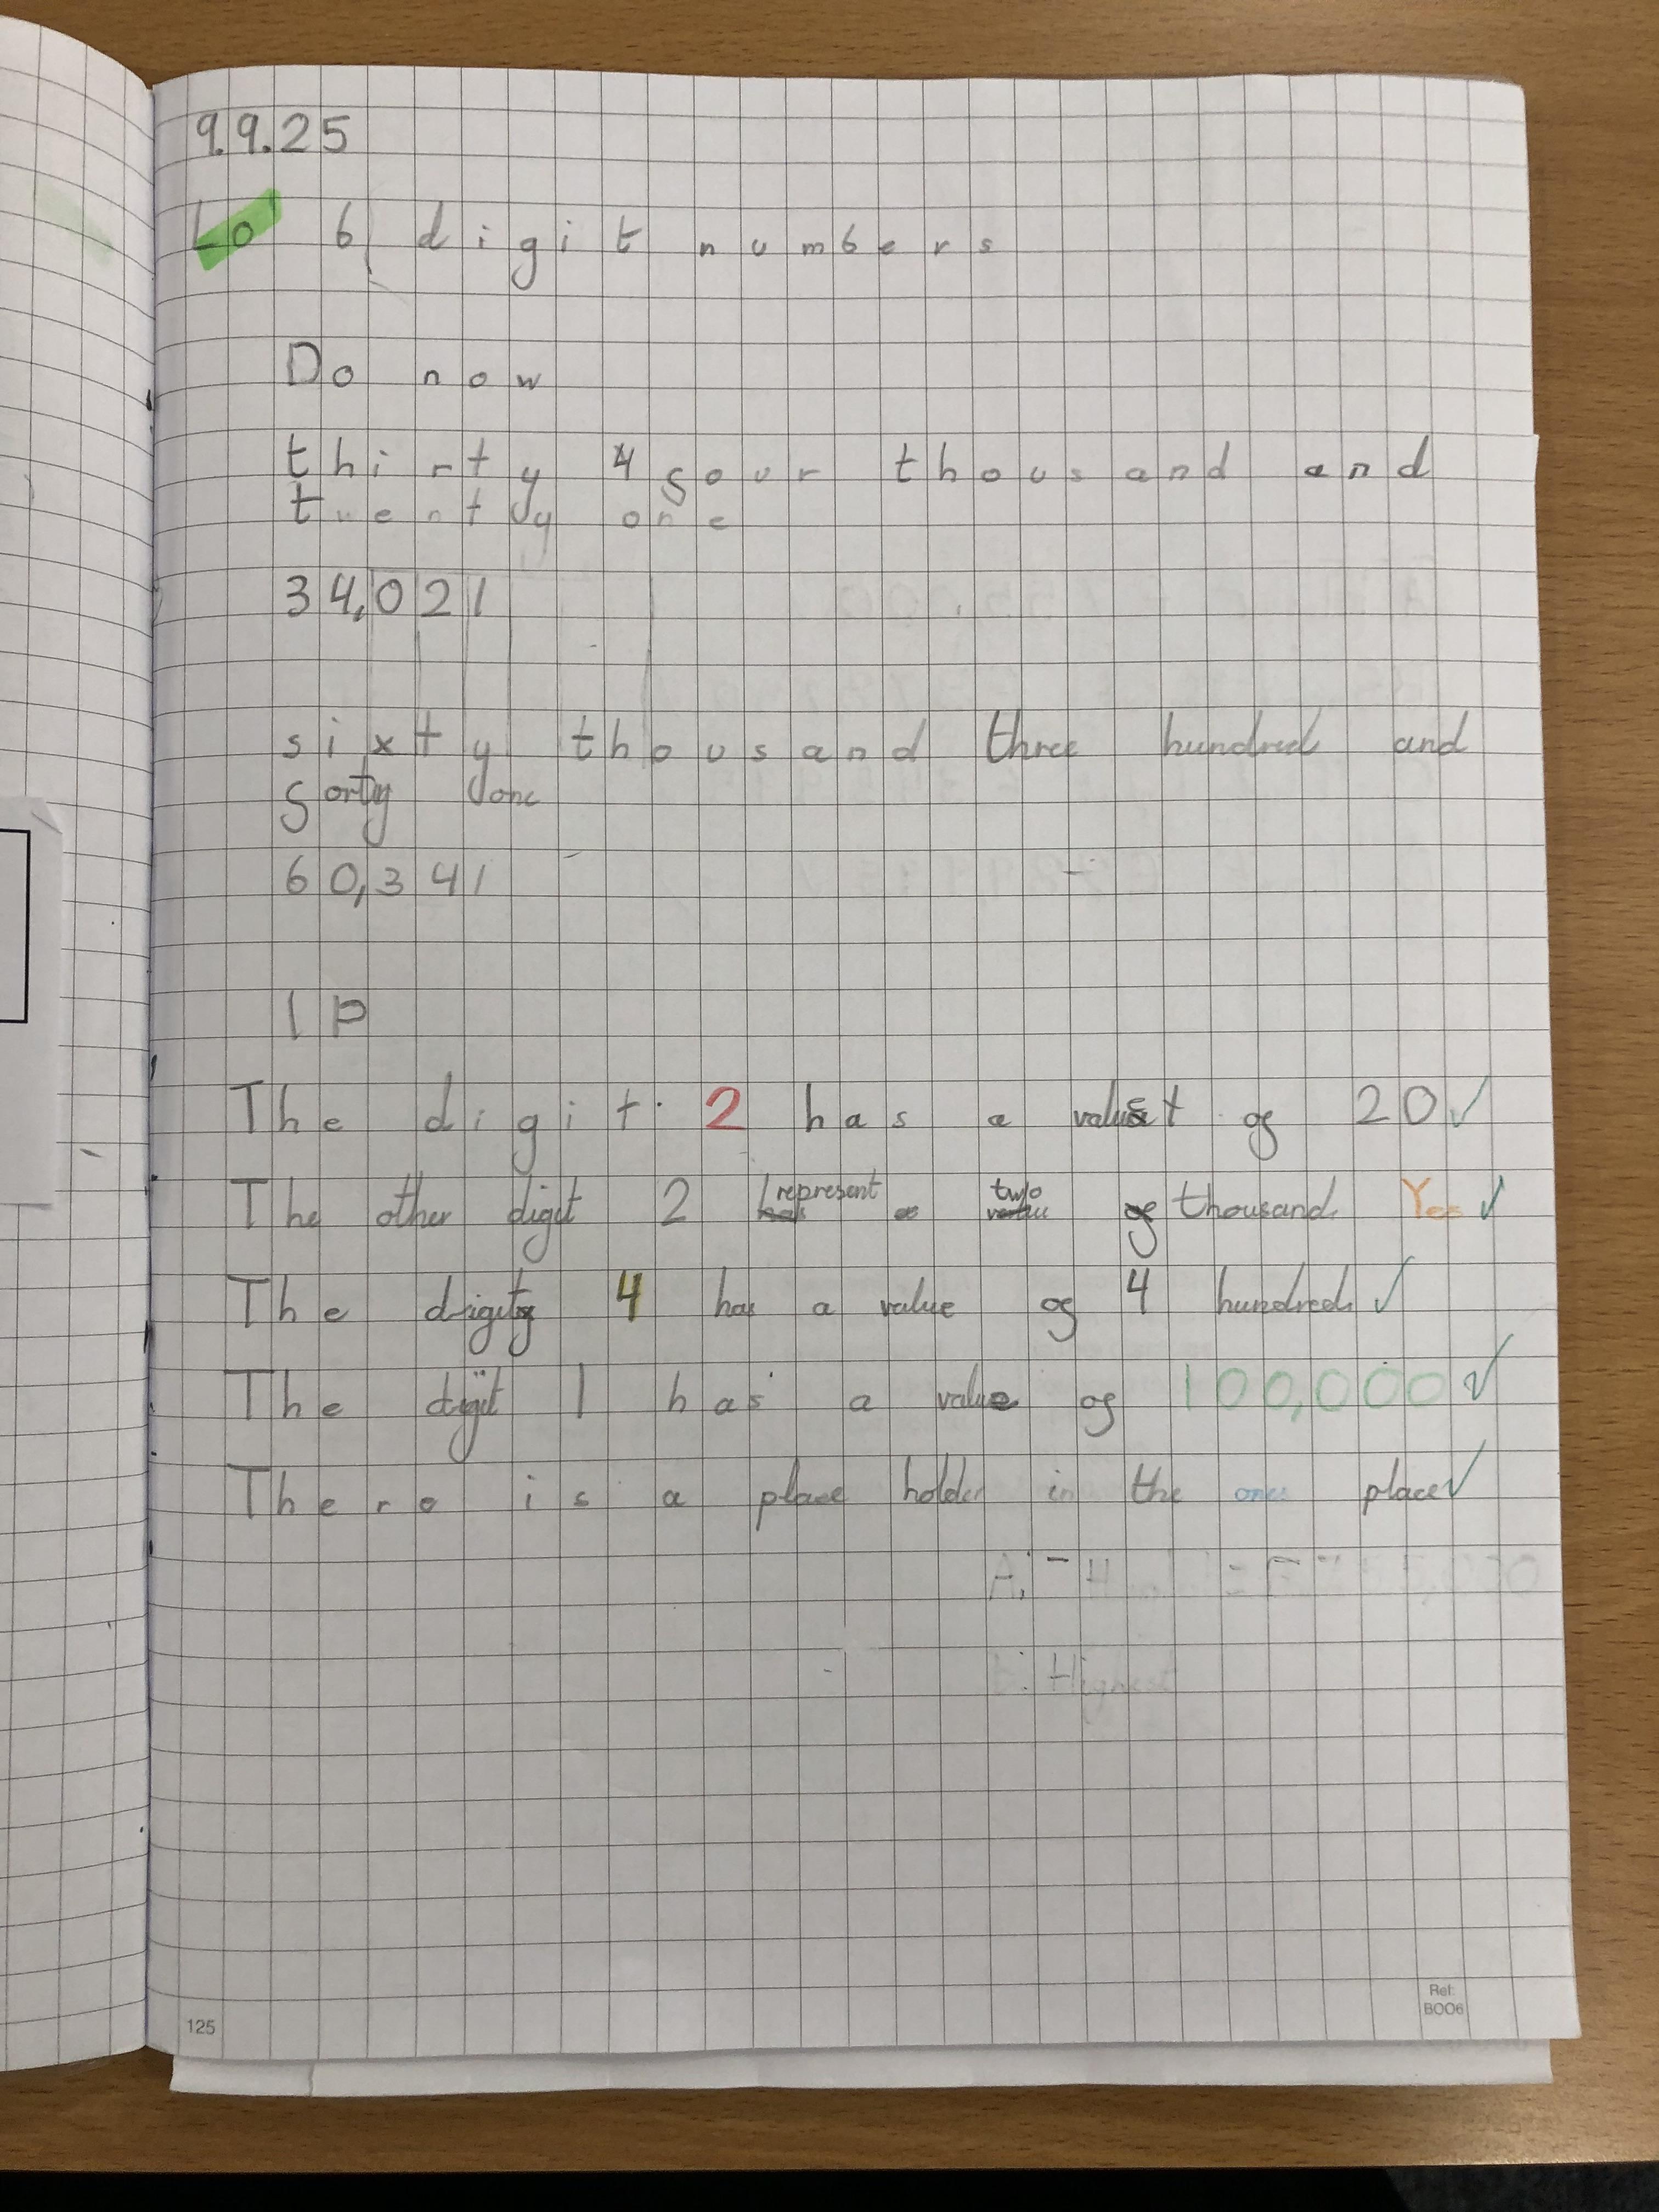 9.9.25
Lo 6 digit numbers
Do now
thirty 4 four thousand and
twenty one
34,021
sixty thousand three hundred and
forty one
60,341
IP
The digit 2 has a value of 20 ✓
The other digit 2 represent two thousand Yes ✓
The digit 4 has a value of 4 hundred ✓
The digit 1 has a value of 100,000 ✓
There is a place holder in the ones place ✓
Highest
125
Ref:
BOO6